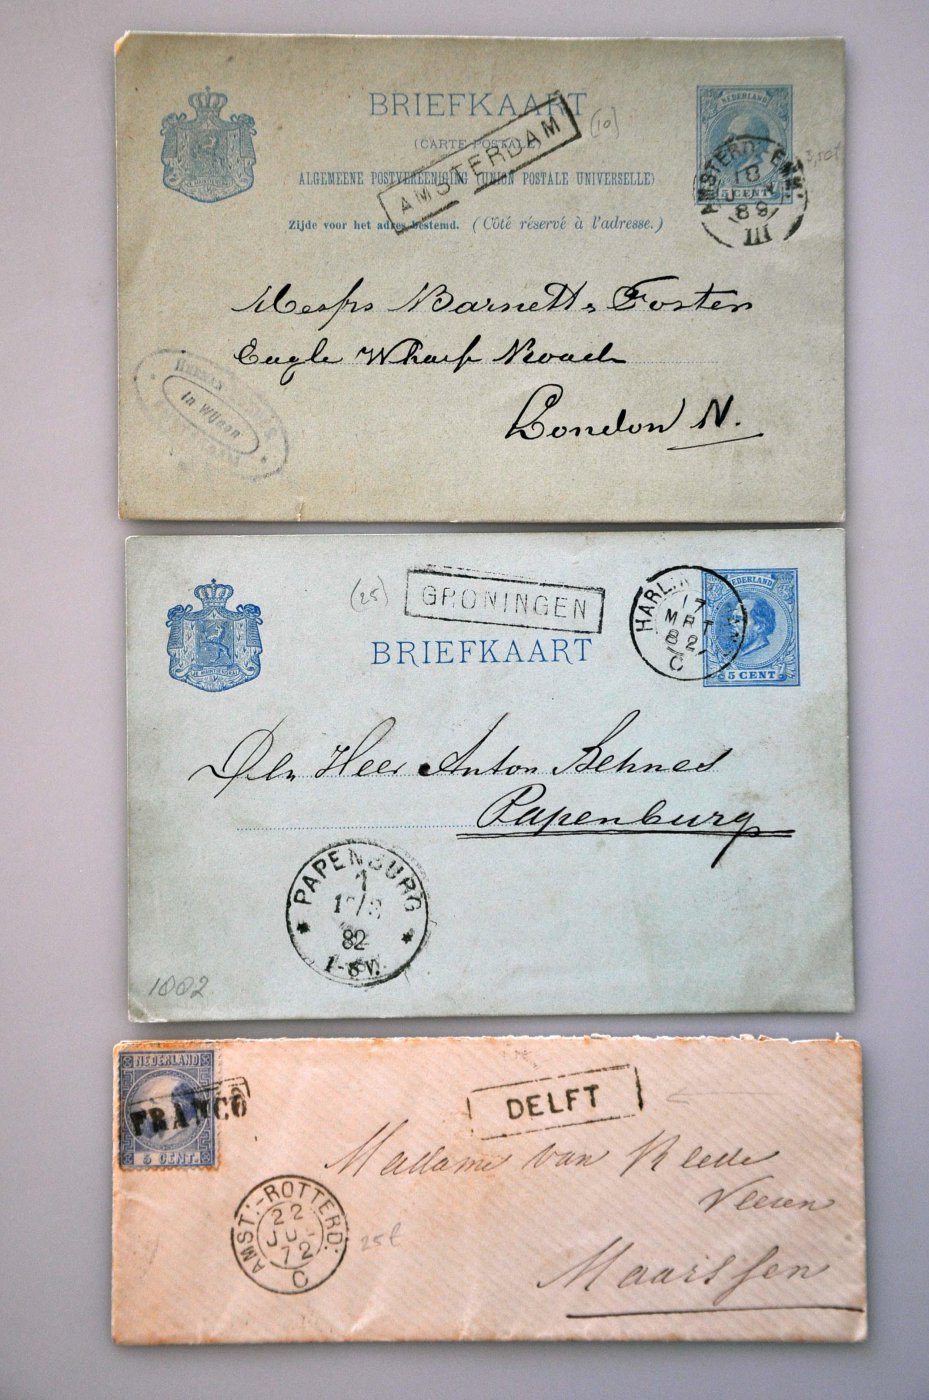 BRIEFKAART
(CARTE POSTALE)
ALGEMEENE POSTVEREENIGING (UNION POSTALE UNIVERSELLE)
Zijde voor het adres bestemd. (Côté réservé à l'adresse.)
AMSTERDAM
(10)
NEDERLAND
5 CENT
AMSTERD. EMM.
18
89
III
Messrs Barnett & Foster
Eagle Wharf Road
London N.
in Wijnen
(25)
GRONINGEN
BRIEFKAART
NEDERLAND
5 CENT
17
MRT
82
C
Den Heer Anton Behnes
Papenburg
PAPENBURG
82
1002
NEDERLAND
FRANCO
5 CENT.
DELFT
Madame van Reede
Maarssen
AMST:-ROTTERD:
22
72
C
25f